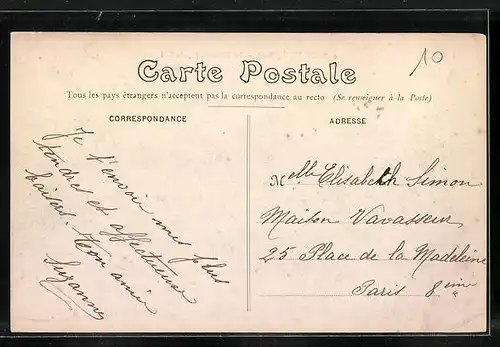 10
Carte Postale
Tous les pays étrangers n'acceptent pas la correspondance au recto (Se renseigner à la Poste)
CORRESPONDANCE
Je t'envoie mes plus
tendres et affectueux
baisers. Ton amie
Suzanne
ADRESSE
Melle Elisabeth Simon
Maison Vavasseur
25 Place de la Madeleine
Paris 8eme